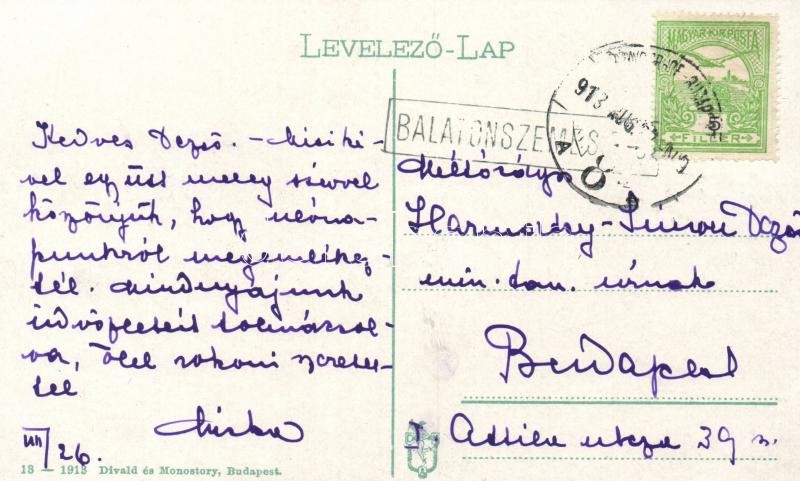 LEVELEZŐ-LAP
MAGYAR KIR. POSTA
FILLÉR
913
BALATONSZEMES
Kedves Dezső. – Misiké-
vel együtt meleg szívvel
köszönjük, hogy névna-
punkról megemlékez-
tél. Mindnyájunk
üdvözletét tolmácsol-
va, ölel rokoni szeretet-
tel
Miska
VIII/26.
Méltóságos
Harmathy-Simon Dezső
min. tan. úrnak
Budapest
I. Attila utcza 39 sz.
13 — 1913 Divald és Monostory, Budapest.